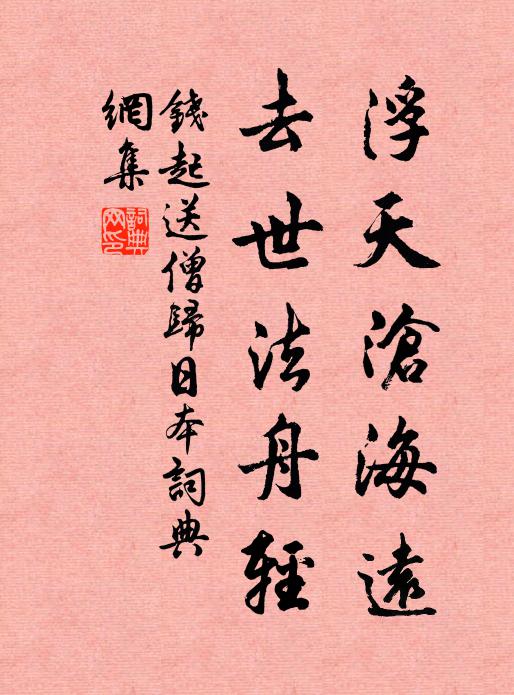 浮天滄海遠
去世法舟輕
錢起送僧歸日本詞典
網集
詞典網印